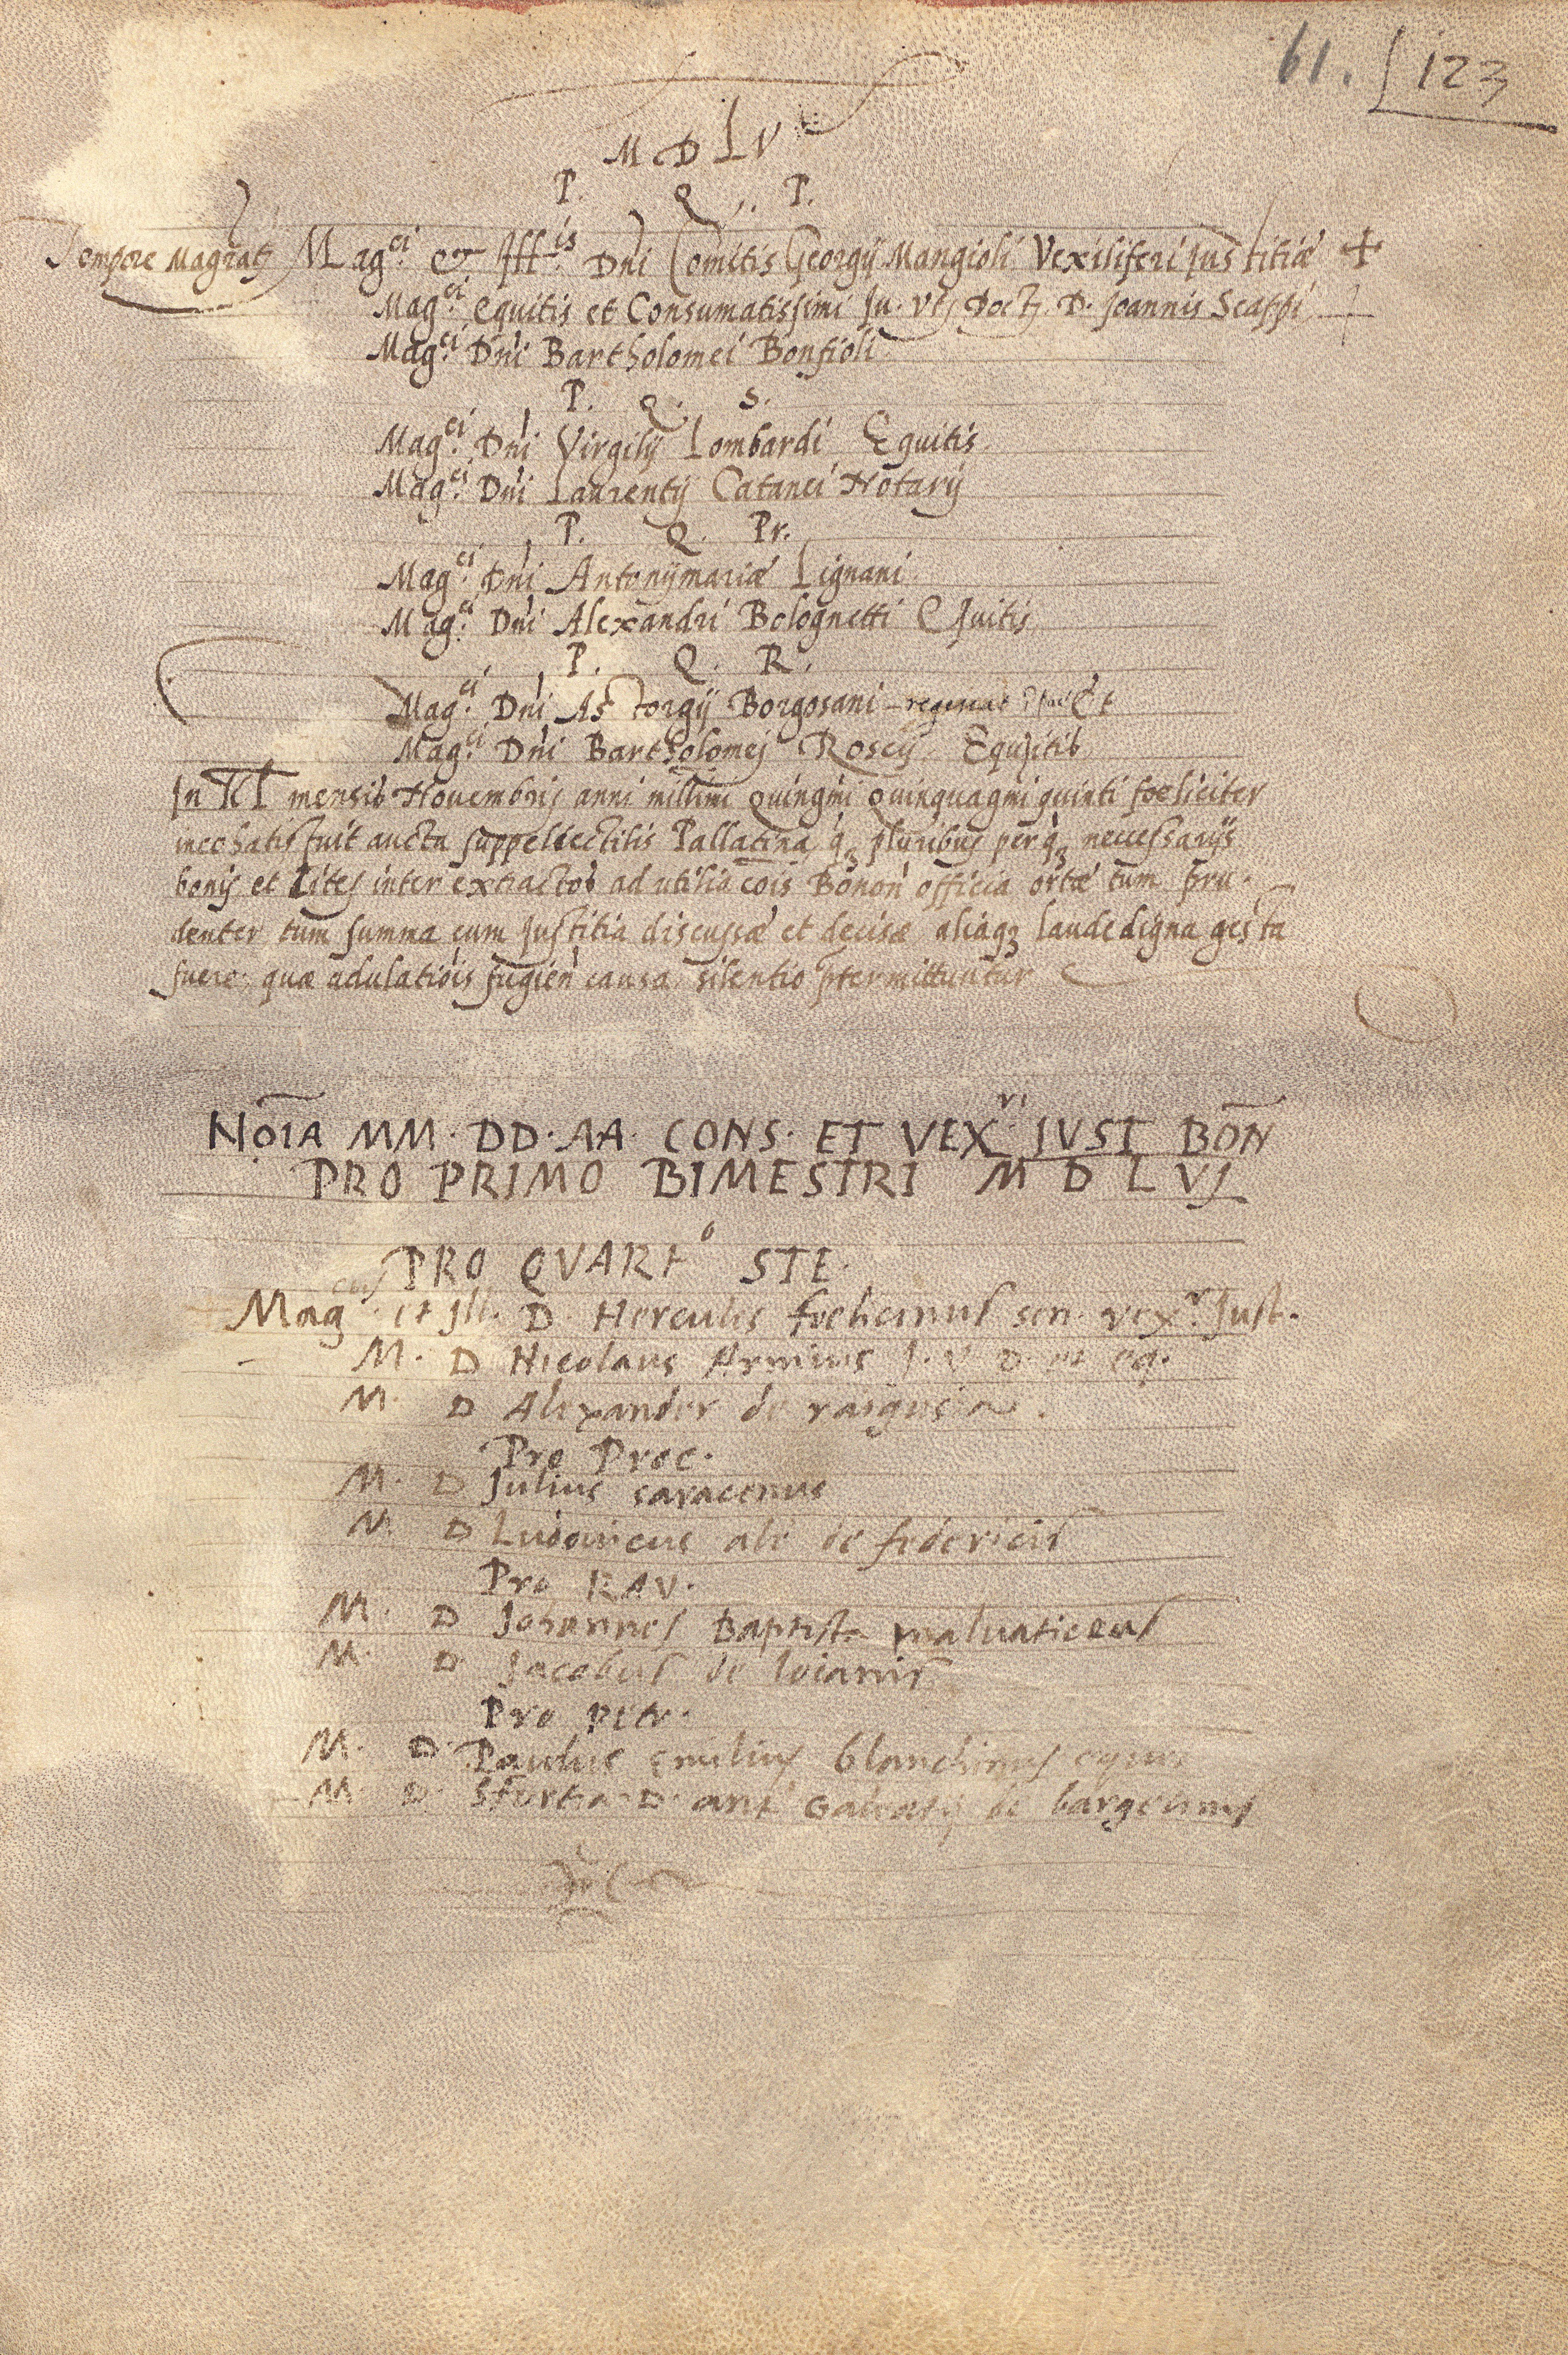 61. 123
M D L V
P. Q. P.
Tempore Magratꝫ Mag.ci & Ill.is Dñi Comitis Georgij Mangioli Vexiliferi Iustitiæ +
Mag.ci equitis et Consumatissimi Iu. Vtꝫ Doctꝫ. D. Joannis Scappi
Mag.ci Dñi Bartholomei Bonfioli
P. Q. S.
Mag.ci Dñi Virgilij Lombardi Equitis
Mag.ci Dñi Laurentij Catanei Notarij
P. Q. Pr.
Mag.ci Dñi Antonijmariæ Lignani
Mag.ci Dñi Alexandri Bolognetti Equitis
P. Q. R.
Mag.ci Dñi Astorgij Borgosani Et
Mag.ci Dñi Bartholomej Roscij Equitib
In Kl mensib Nouembris anni millimi Quingmi Quinquagmi quinti foeliciter
incohatis fuit aucta suppellectilis Pallatina, qꝫ pluribus perqꝫ neccessarijs
bonis et Lites inter extractos ad utilia cõis Bonon̄ officia ortæ tum pru-
denter tum summa cum Justitia discussæ et decisæ aliaqꝫ laude digna gesta
fuere, quæ adulatiõis fugien̄ causa silentio ptermittuntur
NOĪA MM. DD. AA. CONS. ET VEX.ri IVST BOÑ
PRO PRIMO BIMESTRI M D L VJ
PRO QVARTo STE.
Mag.cus et Jll. D. Hercules foelicinus sen. vex.r Just.
M. D Nicolaus Armius J. V. D. et eq.
M. D Alexander de
Pro Proc.
M. D Julius saracenus
M. D Ludovicus als de federicis
Pro RAV.
M. D Johannes Baptista maluaticeus
M. D Jacobus de loianis
Pro petr.
M. D. Paulus emilius blanchinus eques
M. D. Sfortia D. ant Galeatij de bargelinis